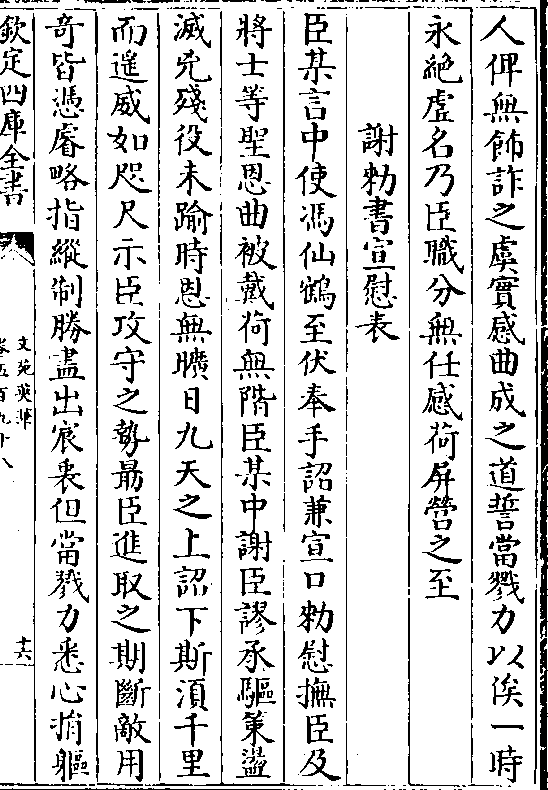 人俾無飾詐之虞實感曲成之道誓當戮力以俟一時
永絕虚名乃臣職分無任感荷屏營之至
謝勑書宣慰表
臣某言中使馮仙鶴至伏奉手詔兼宣口勑慰撫臣及
將士等聖恩曲被戴荷無階臣某中謝臣謬承驅策盪
滅兇殘役未踰時恩無曠日九天之上詔下斯須千里
而遥威如咫尺示臣攻守之勢勗臣進取之期斷敵用
竒皆憑睿略指縱制勝盡出宸衷但當戮力悉心捐軀
欽定四庫全書
文苑英華
卷五百九十八
十六